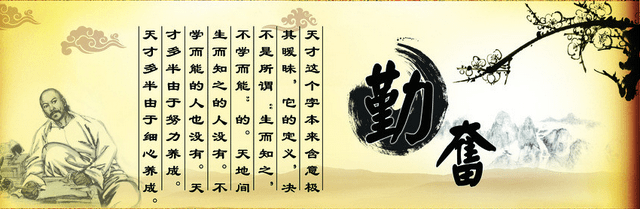 勤奮
天才这个字本来含意极
其暧昧，它的定义，决
不是所谓“生而知之，
不学而能”的。天地间
生而知之的人没有。不
学而能的人也没有。天
才多半由于努力养成。
天才多半由于细心养成。